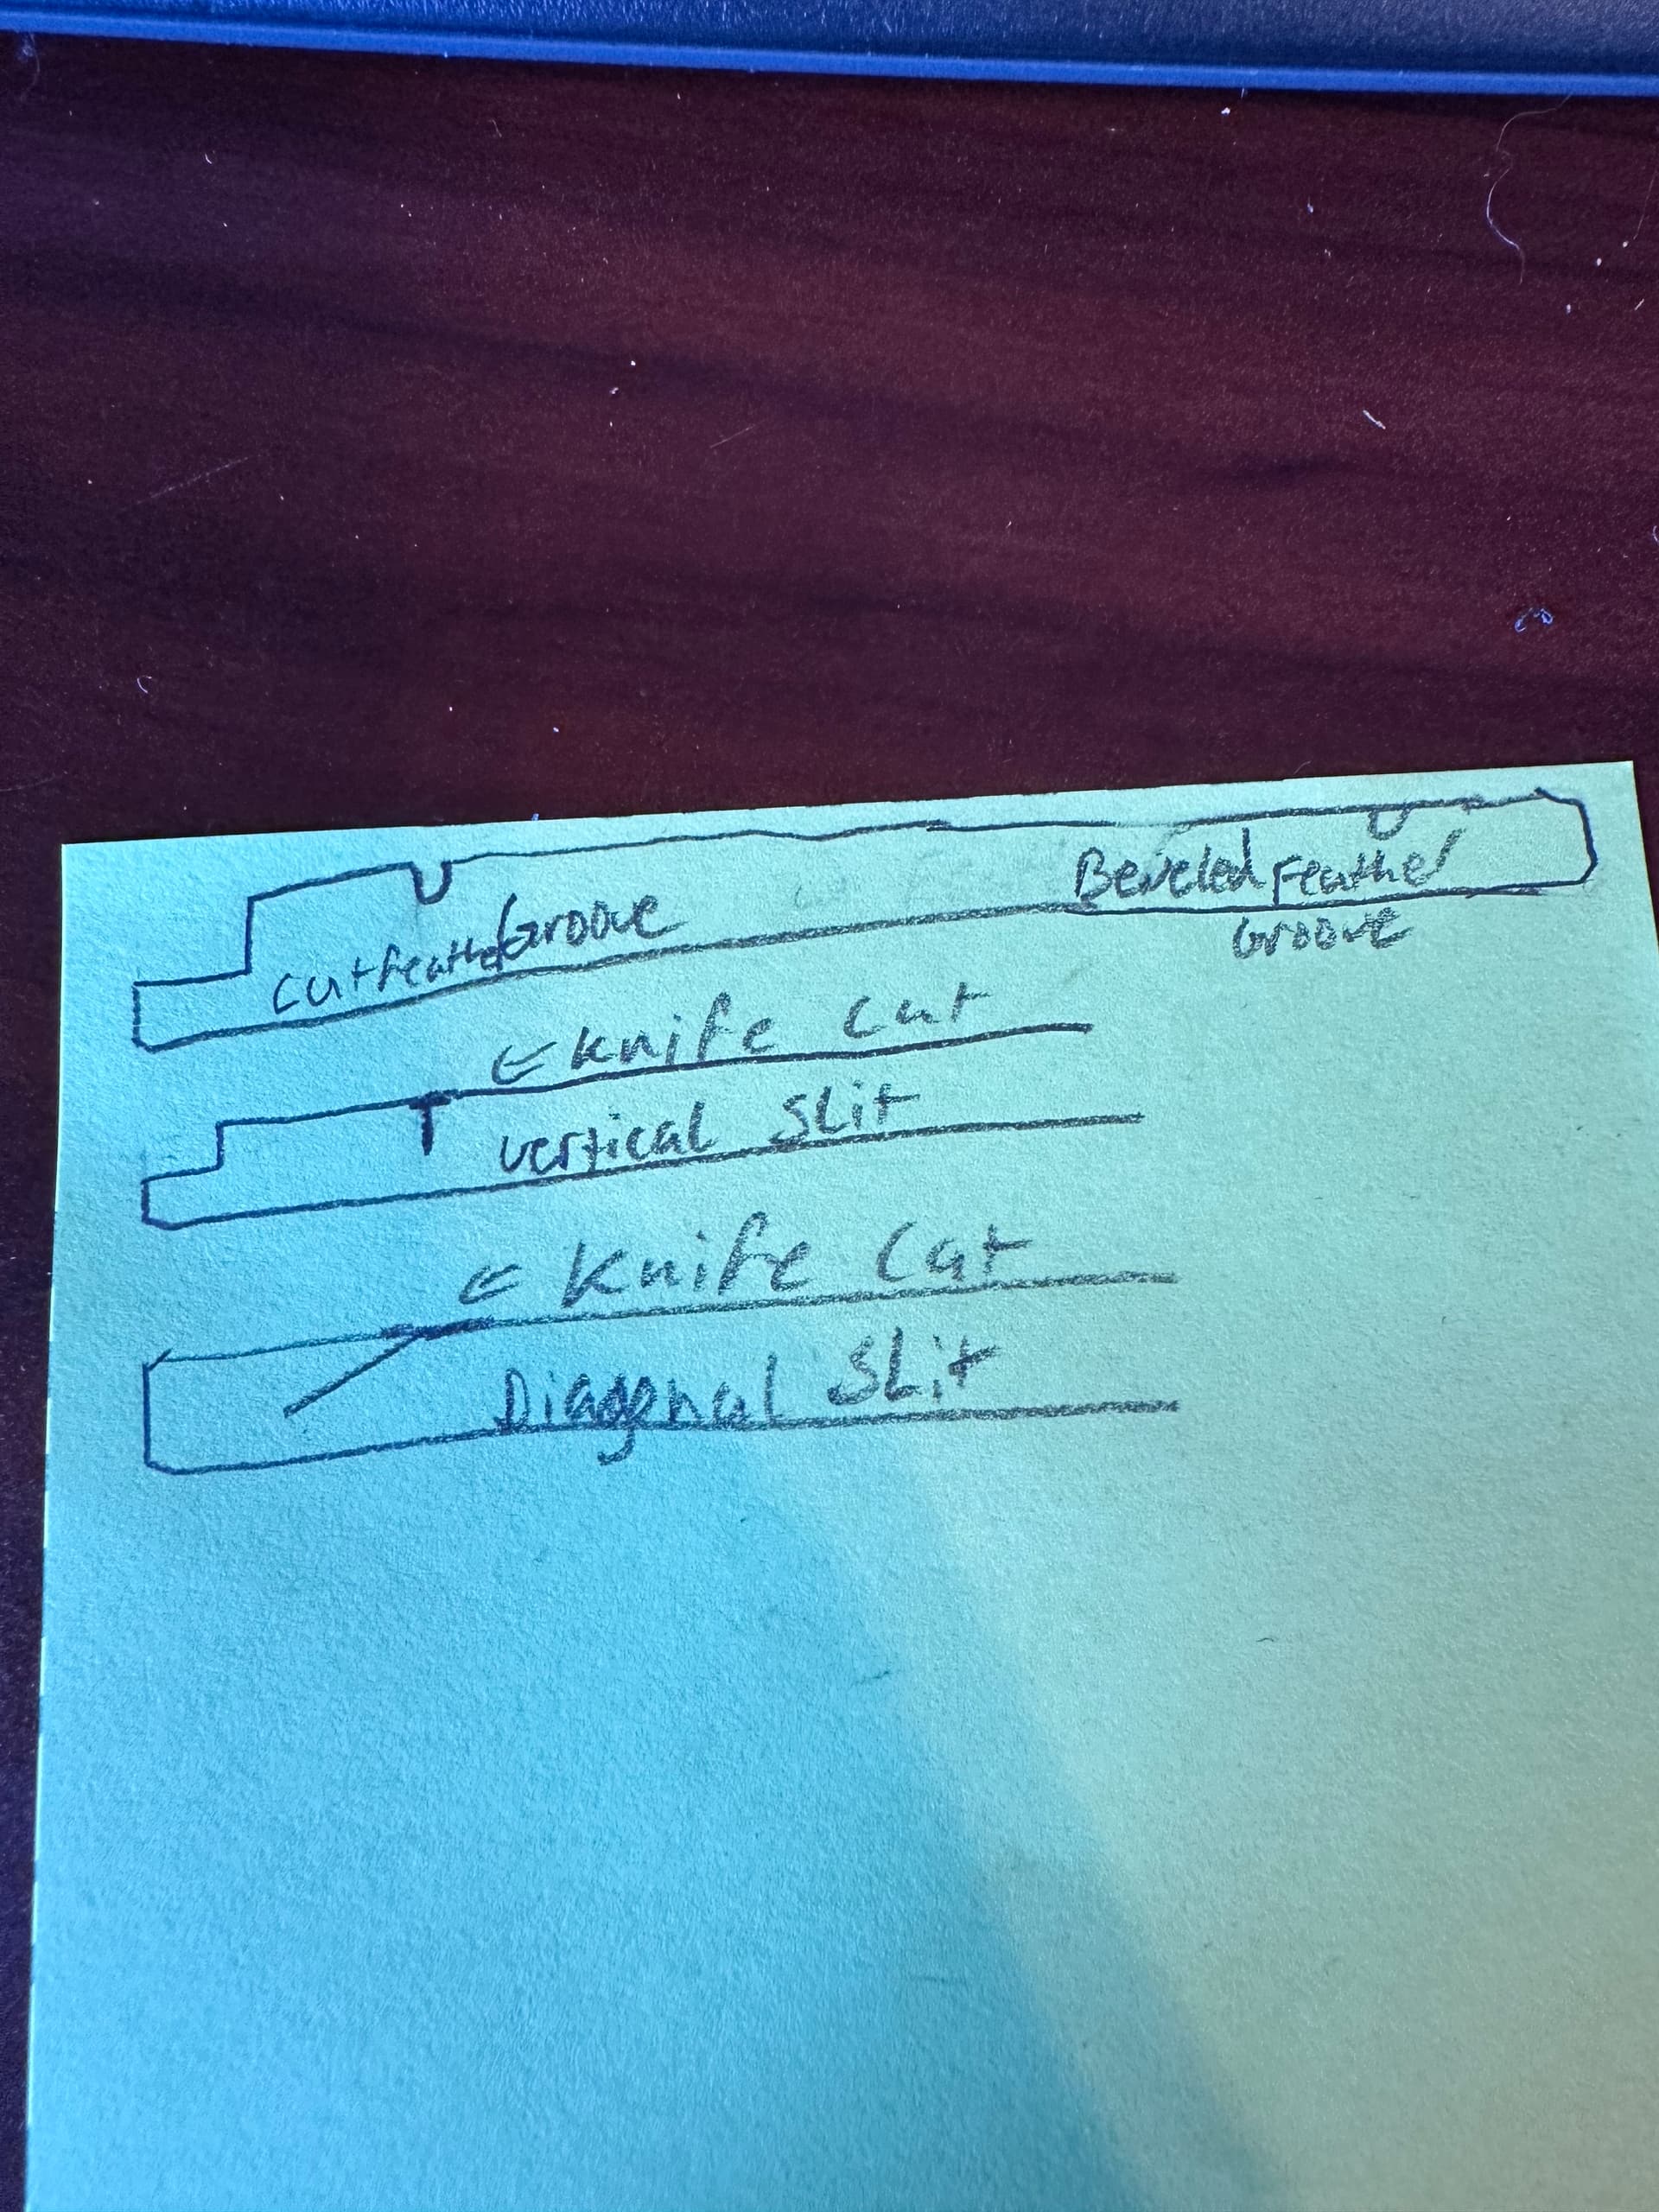 Beveled Feather
Groove
Cut feather Groove
← Knife Cut
vertical Slit
← Knife Cut
Diagonal Slit